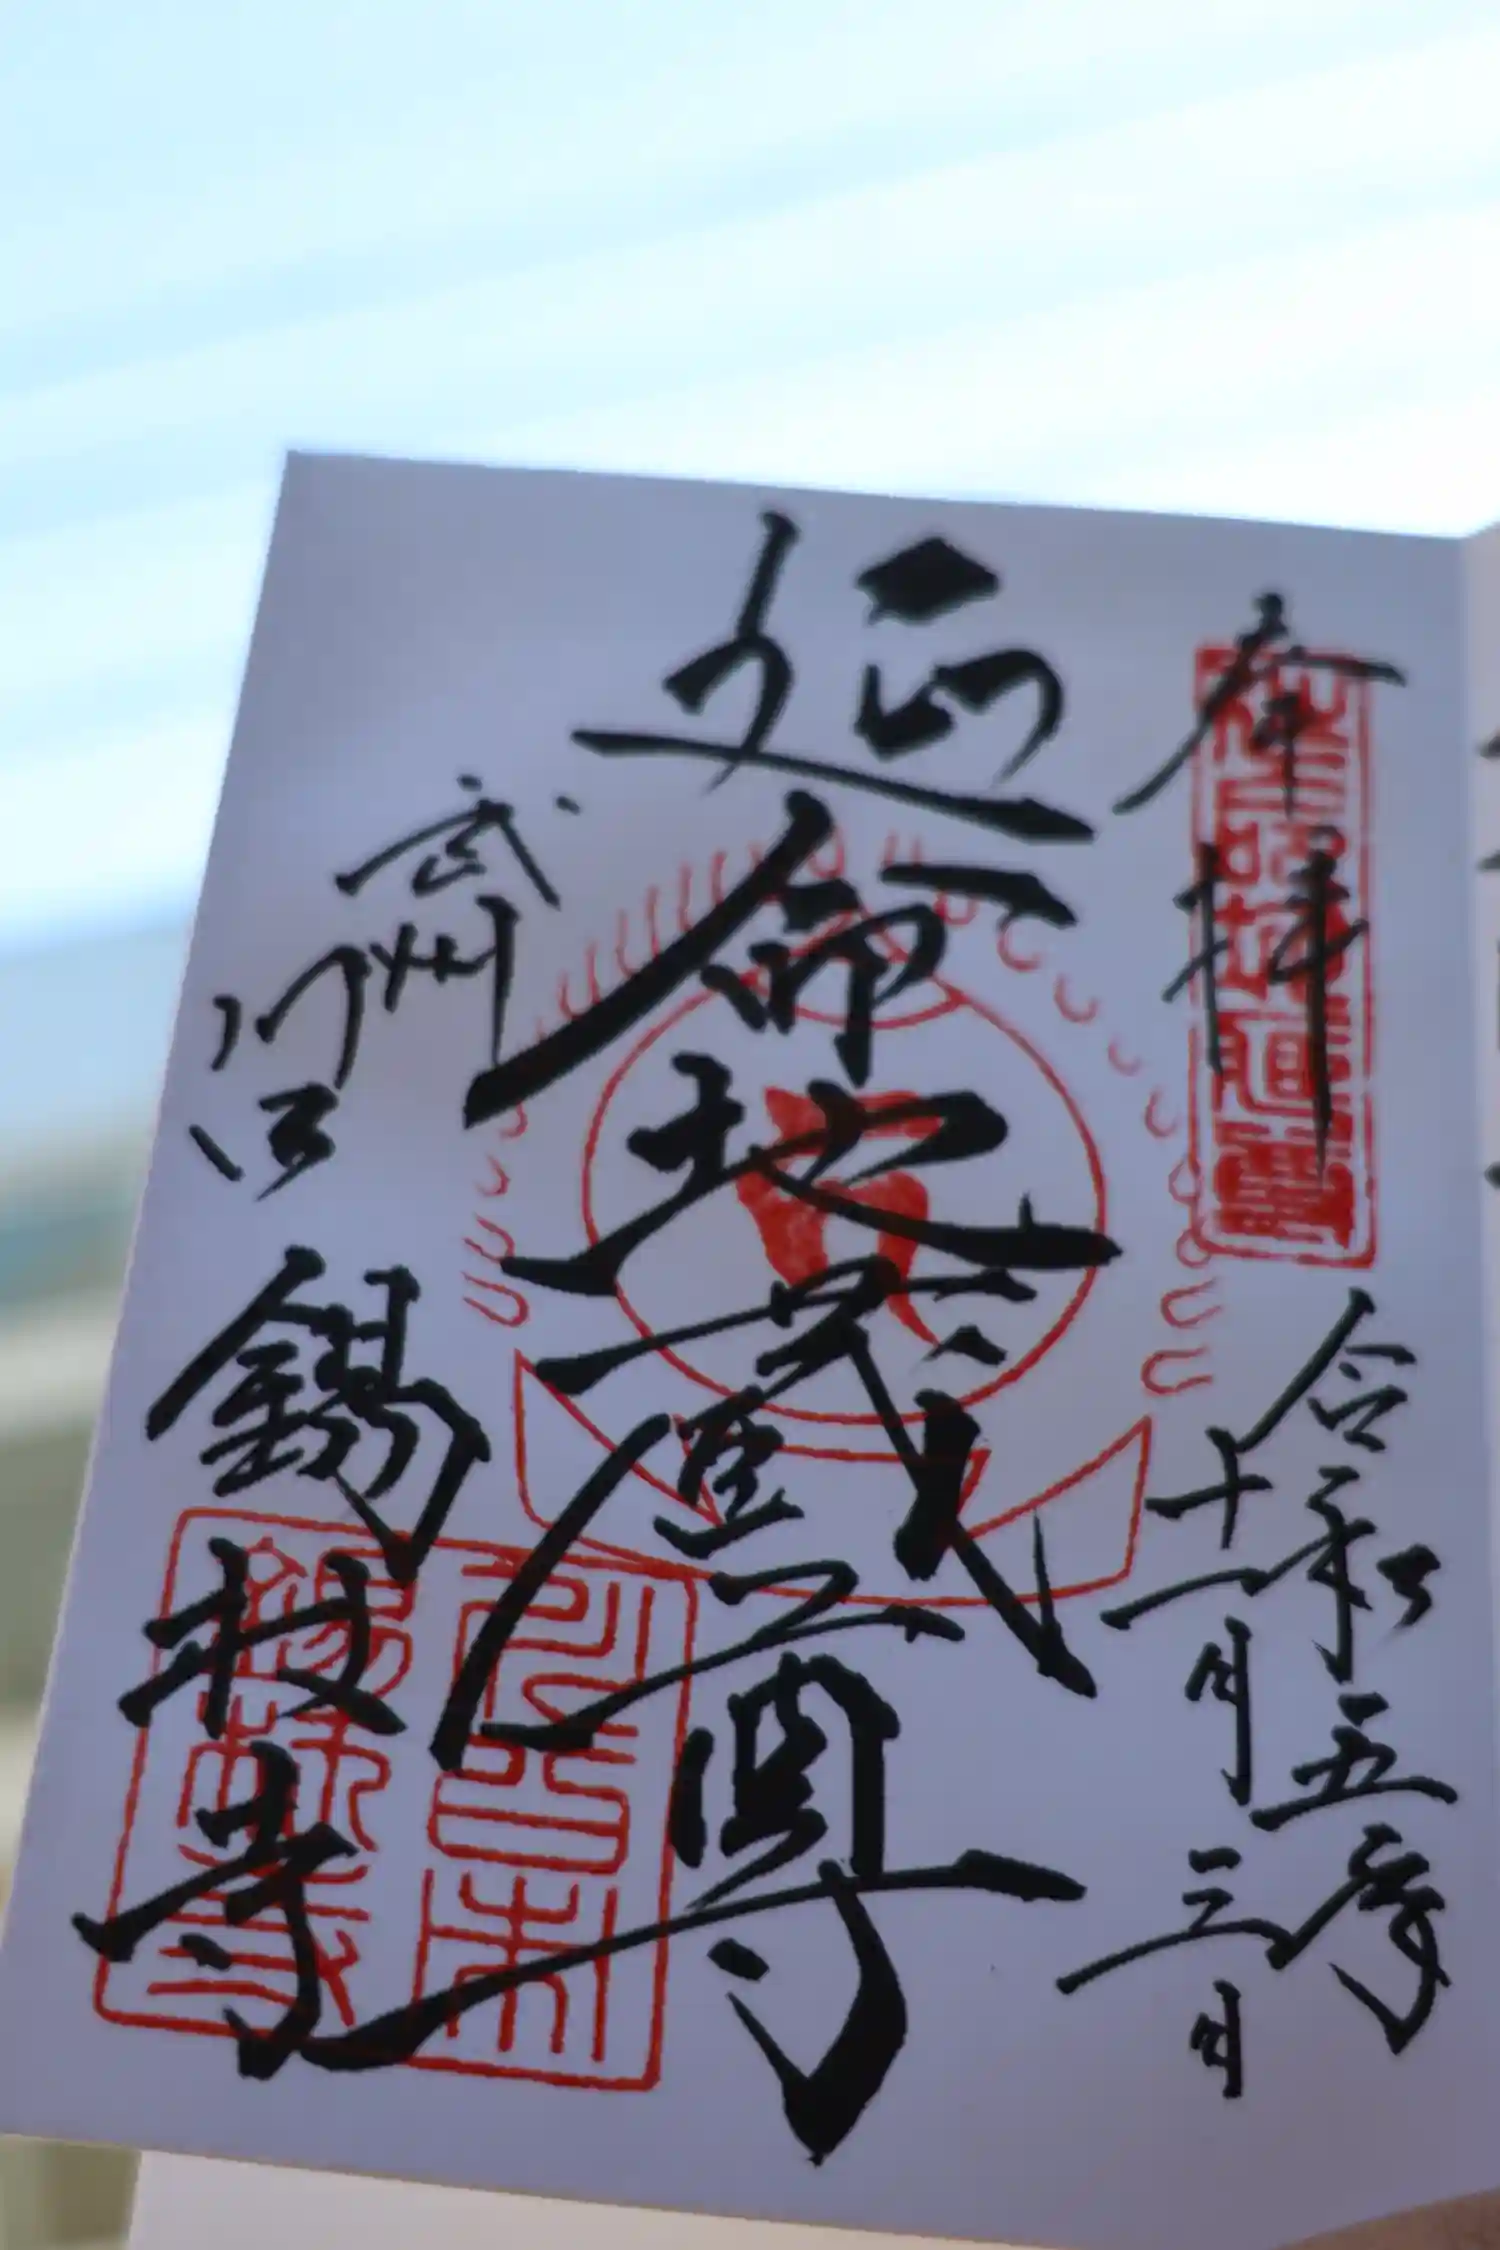 奉拝
令和五年
十一月三日
延命地蔵尊
武州
川口
錫杖寺